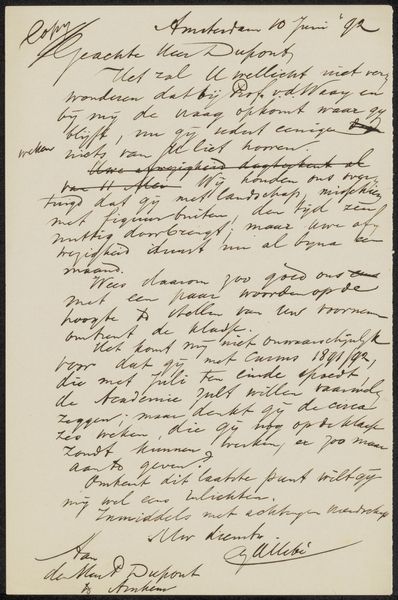 Copy
Amsterdam 10 Juni '92
Geachte Heer Dupont,
Het zal U wellicht niet ver
wonderen dat bij Prof. v.d. Waay en
bij mij de vraag opkomt waar gij
blijft, nu gij sedert eenige
weken niets van U liet hooren.
Uwe afwezigheid dagteekent al
van 11 Mei. Wij houden ons over
tuigd dat gij met landschap, misschien
met figuur buiten, den tijd zeer
nuttig doorbrengt; maar uwe af
wezigheid duurt nu al byna een
maand.
Wees daarom zoo goed ons
met een paar woorden op de
hoogte te stellen van Uw voornemen
omtrent de klasse.
Het komt mij niet onwaarschijnlijk
voor dat gij met cursus 1891/92,
die met Juli ten einde spoedt,
de Academie zult willen vaarwel
zeggen; maar denkt gij de circa
zes weken, die gij nog op de klasse
zoudt kunnen werken, er zoo maar
aan te geven?
Omtrent dit laatste punt wilt gij
mij wel eens inlichten.
Inmiddels met achting en vriendschap
Uw dienstw.
Allebé
Aan
den Heer P. Dupont
te Arnhem